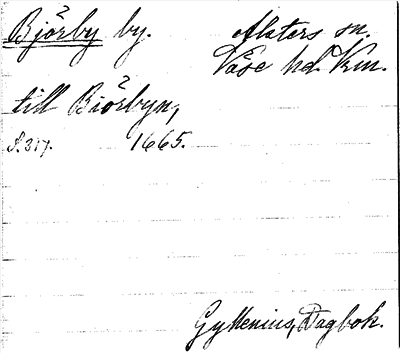 Björby by. Alsters sn.
Väse hd. Krm.
till Biörbyn,
S. 317. 1665.
Gyllenius, Dagbok.